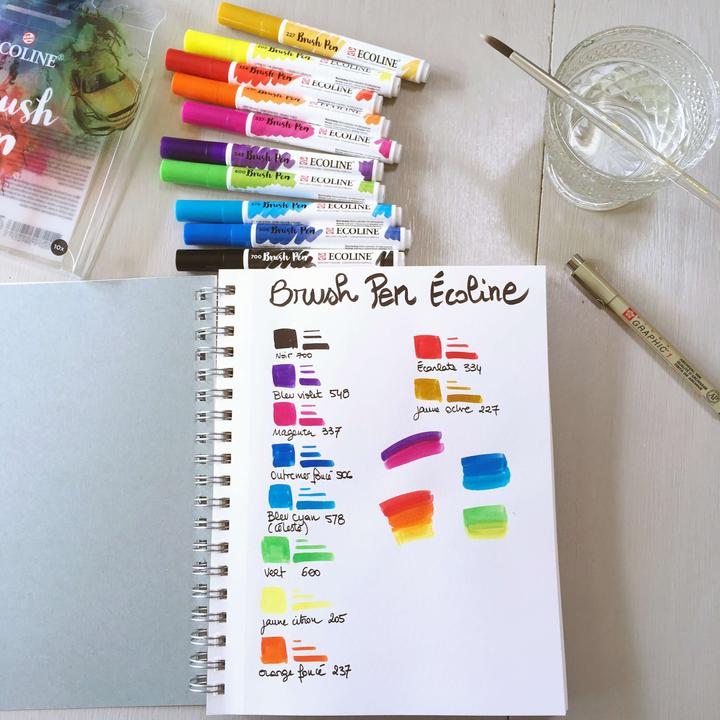 COLINE®
ush
n
ECOLINE
10x
227 Brush Pen ECOLINE
205 Brush Pen ECOLINE
334 Brush Pen ECOLINE
Brush Pen ECOLINE
337 Brush Pen ECOLINE
548 Brush Pen ECOLINE
600 Brush Pen ECOLINE
578 Brush Pen ECOLINE
506 Brush Pen ECOLINE
700 Brush Pen ECOLINE
GRAPHIC 1
Brush Pen Écoline
Noir 700
Bleu violet 548
Magenta 337
Outremer foncé 506
Bleu cyan 578
(céleste)
Vert 600
jaune citron 205
Orange foncé 237
Écarlate 334
jaune ocre 227